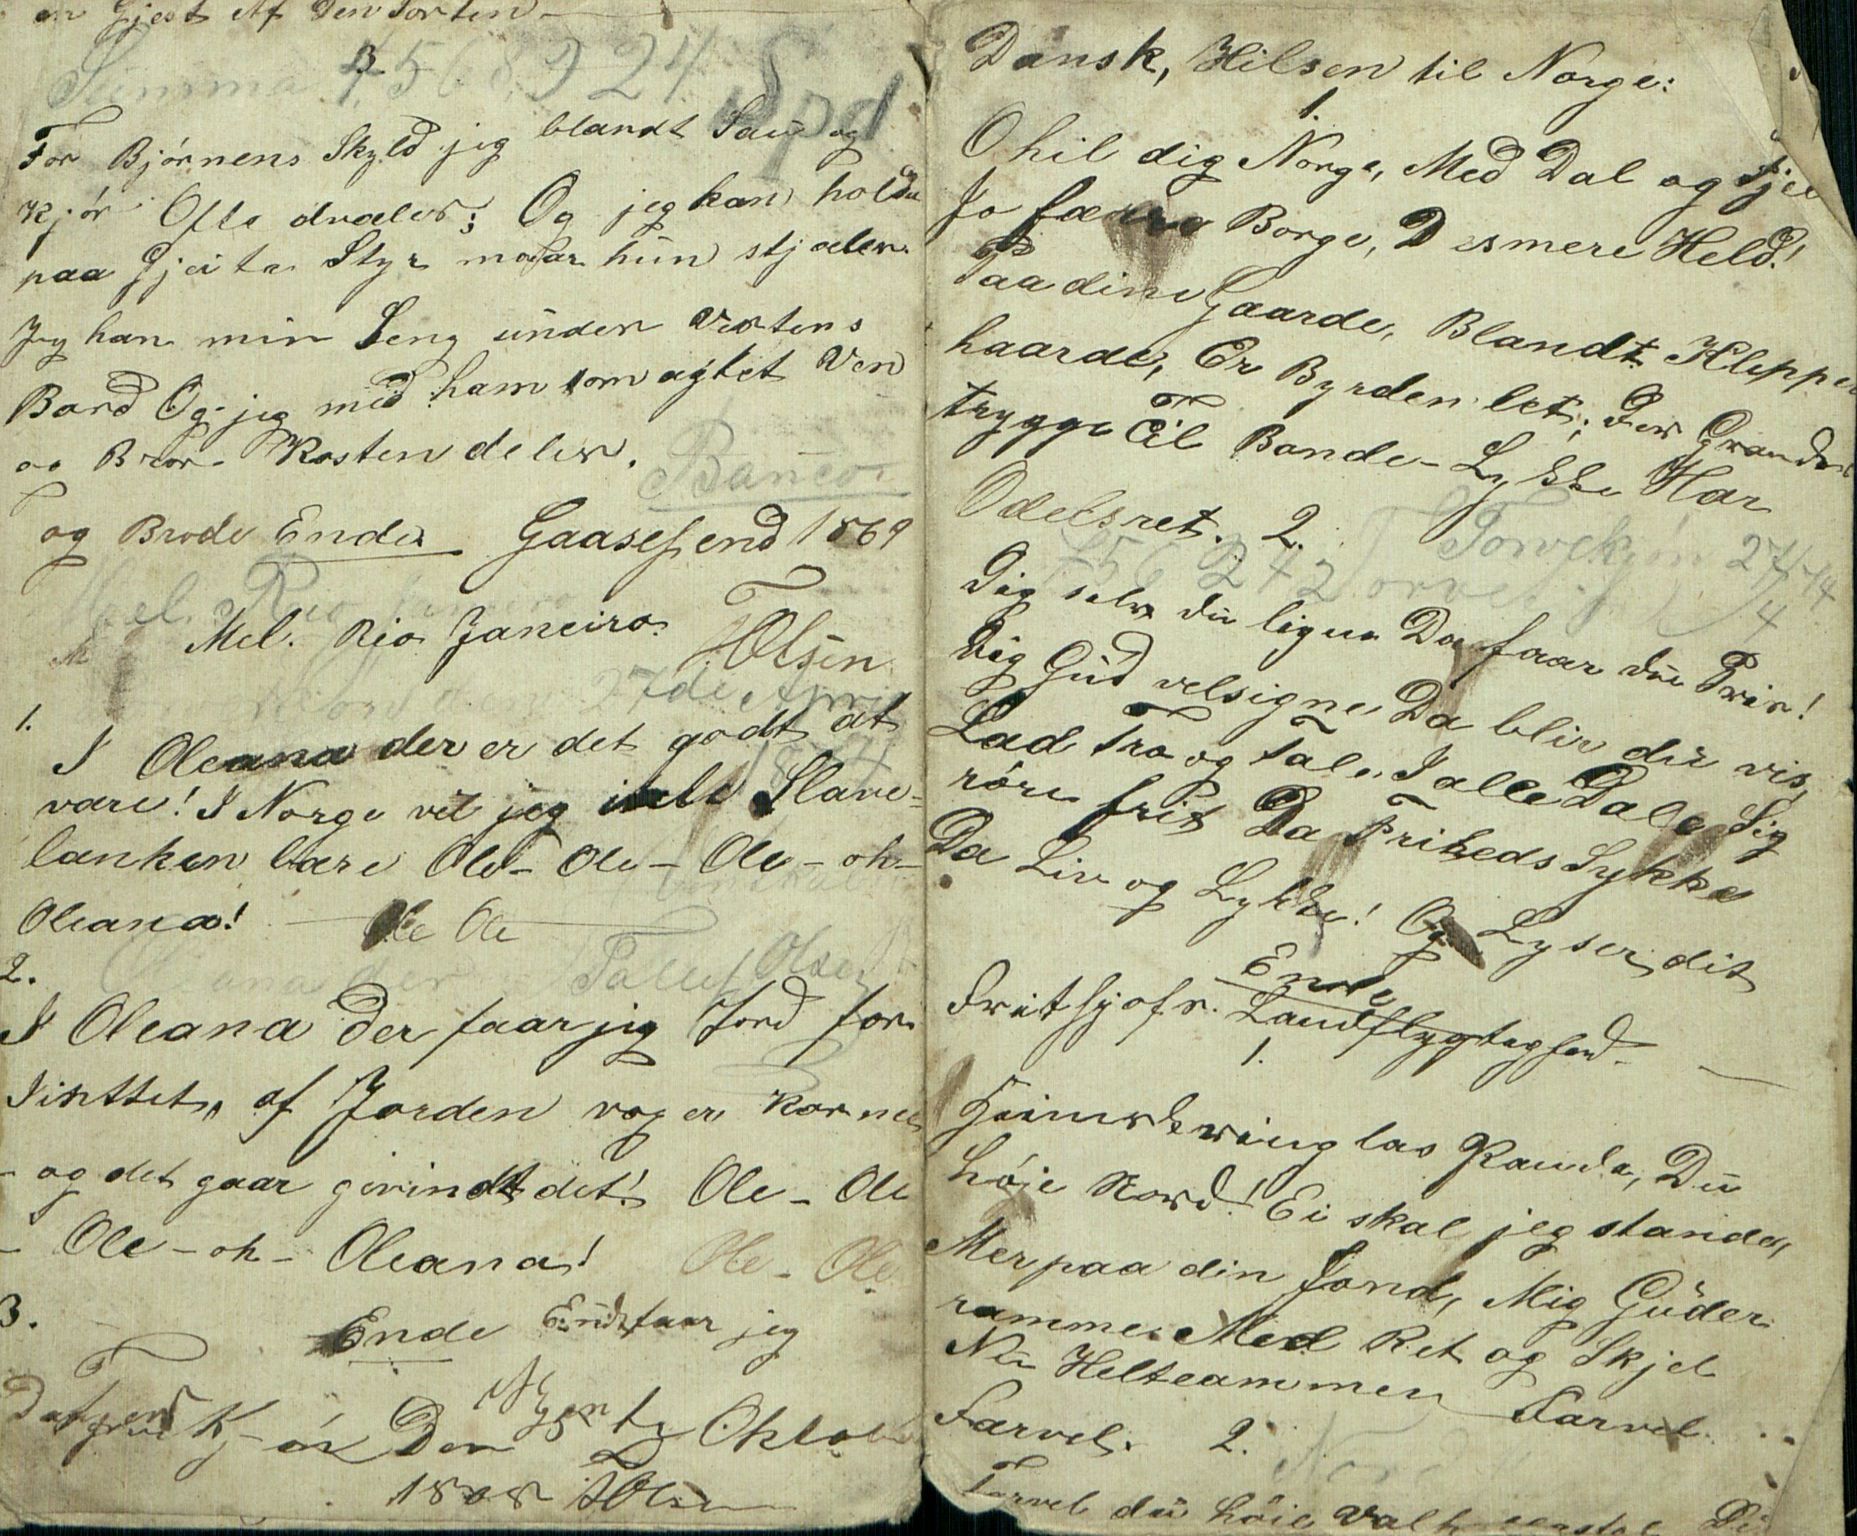 en Gjest Af Den sorten
3
Summa 4,568,924 Spd
For Bjørnens Skyld jeg blandt Sau og
Kjør Ofte dvæler; Og jeg kan holde
paa Gjeita Styr naar hun stjæler.
Jeg har min Seng under Vertens
Bord Og jeg med ham som agtet Ven
og Bror Kosten deler.
Banco
og Brode Ende Gaasessend 1869
Mel. Rio Janeiro. TOlsen
27de April
1.
I Oleana der er det godt at
være! I Norge vil jeg inte Slave-
lænken bære Ole - Ole - Ole - oh -
Oleana! Ole Ole
Tollef Olsen
2.
I Oleana der faar jeg Jord for
Jinttet, af Jorden voxer Kornet
- og det gaar gevindt det! Ole - Ole
- Ole - oh - Oleana! Ole - Ole
3.
Ende Ende faar jeg
Den Oktob
TOlsen
Dansk, Hilsen til Norge:
1.
O hil dig Norge, Med Dal og Fjel
Jo færre Borge, Desmere Held!
Paa dine Gaarde, Blandt Klipper
haarde, Er Byrden let; Der Grander
trygge Til Bonde-Lykke Har
Odelsret. 2.
27/4
Dig selv du ligne Da faar du Pris!
Dig Gud velsigne, Da blir du vis,
Lad Tro og Tale I alle Dale Sig
røre frit Da Friheds Lykke
Da Liv og Lykke! Og Lyser dit
Ende
Fritsjofs. Landflygtighed.
1.
Heimskringlas Panda, Du
høie Nord! Ei skal jeg standa,
Mer paa din Jord, Mig Guder
ramme Med Ret og Skjel
Nu Helteammen Farvel
Farvel. 2.
Farvel du høie